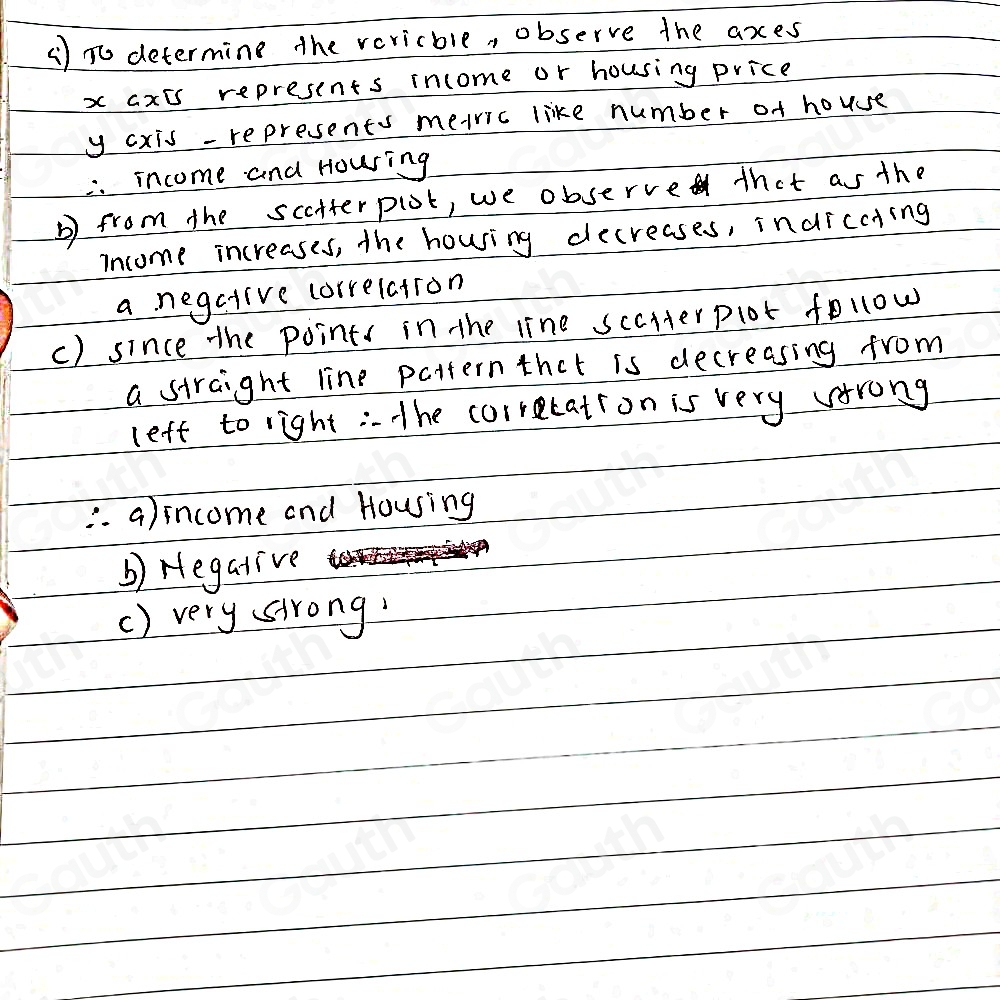 a) To determine the variable, observe the axes
x axis represents income or housing price
y axis - represents metric like number of house
∴ income and Housing
b) from the scatter plot, we observe that as the
income increases, the housing decreases, indicating
a negative correlation
c) since the points in the line scatter plot follow
a straight line pattern that is decreasing from
left to right ∴ the correlation is very strong
∴ a) income and Housing
b) Negative
c) very strong.